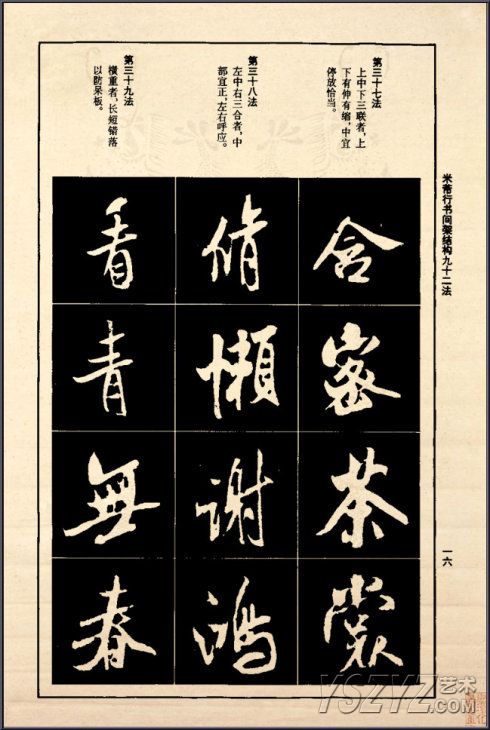 米芾行书间架结构九十二法
一六
第三十七法
上中下三联者，上
下有伸有缩，中宜
停放恰当。
含密茶裳
第三十八法
左中右三合者，中
部宜正，左右呼应。
脩懶謝鴻
第三十九法
横重者，长短错落
以防呆板。
看青無春
YSZYZ艺术
.com